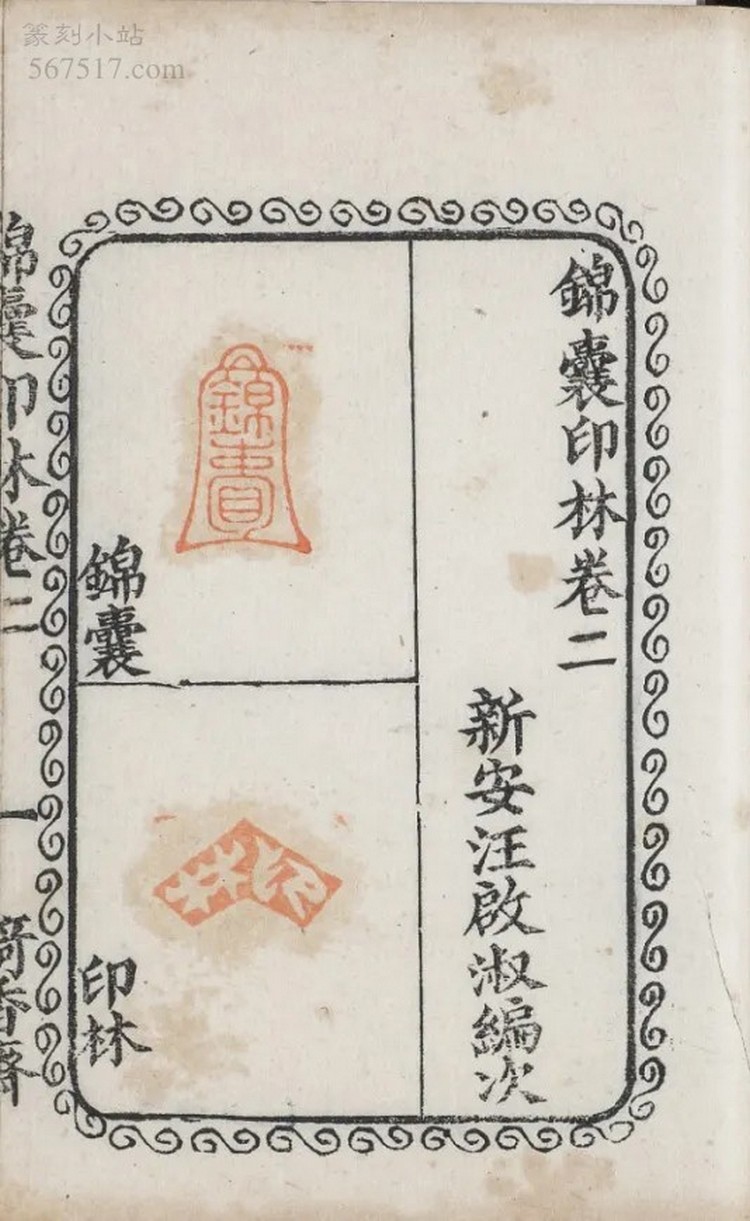 篆刻小站
567517.com
錦囊印林卷二
新安汪啟淑編次
錦囊
印林
錦
印林
錦囊印林卷二
一